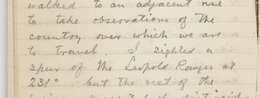 walked to an adjacent
to take observations of the
country over which we are
to travel. I sighted a
spur of the Leopold Ranges at
231° but the rest of the